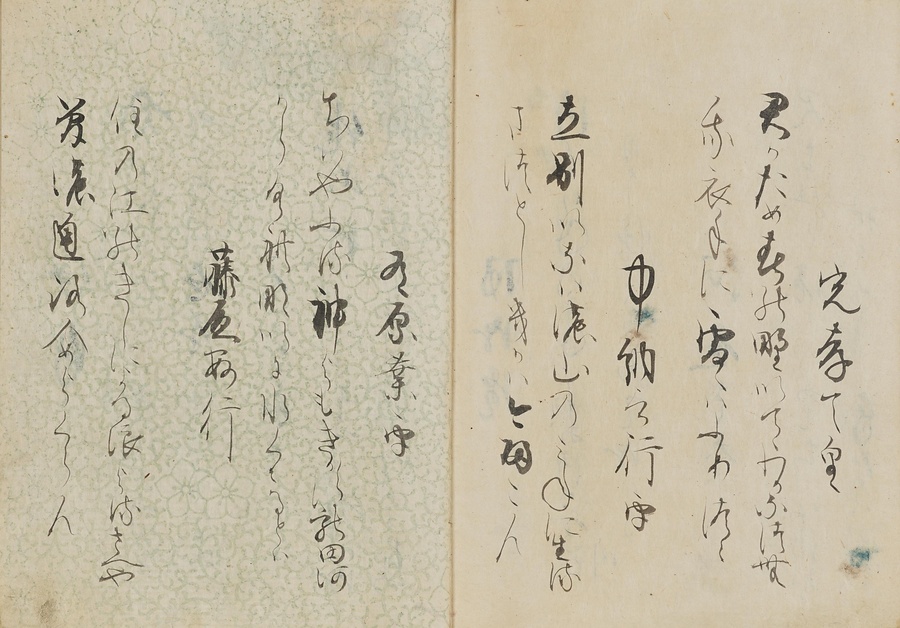 光孝天皇
君かため春の野にいてゝわかな徒無
我衣手に雪はふりつゝ
中納言行平
立別いなは濃山乃ミねに生流
まつとし幾かは今帰こん
在原業平
ちはやふ流神よもきかす龍田河
からくれなゐに水くゝるとは
藤原敏行
住乃江のきしによる浪よ流さへや
夢濃通路人めよくらん